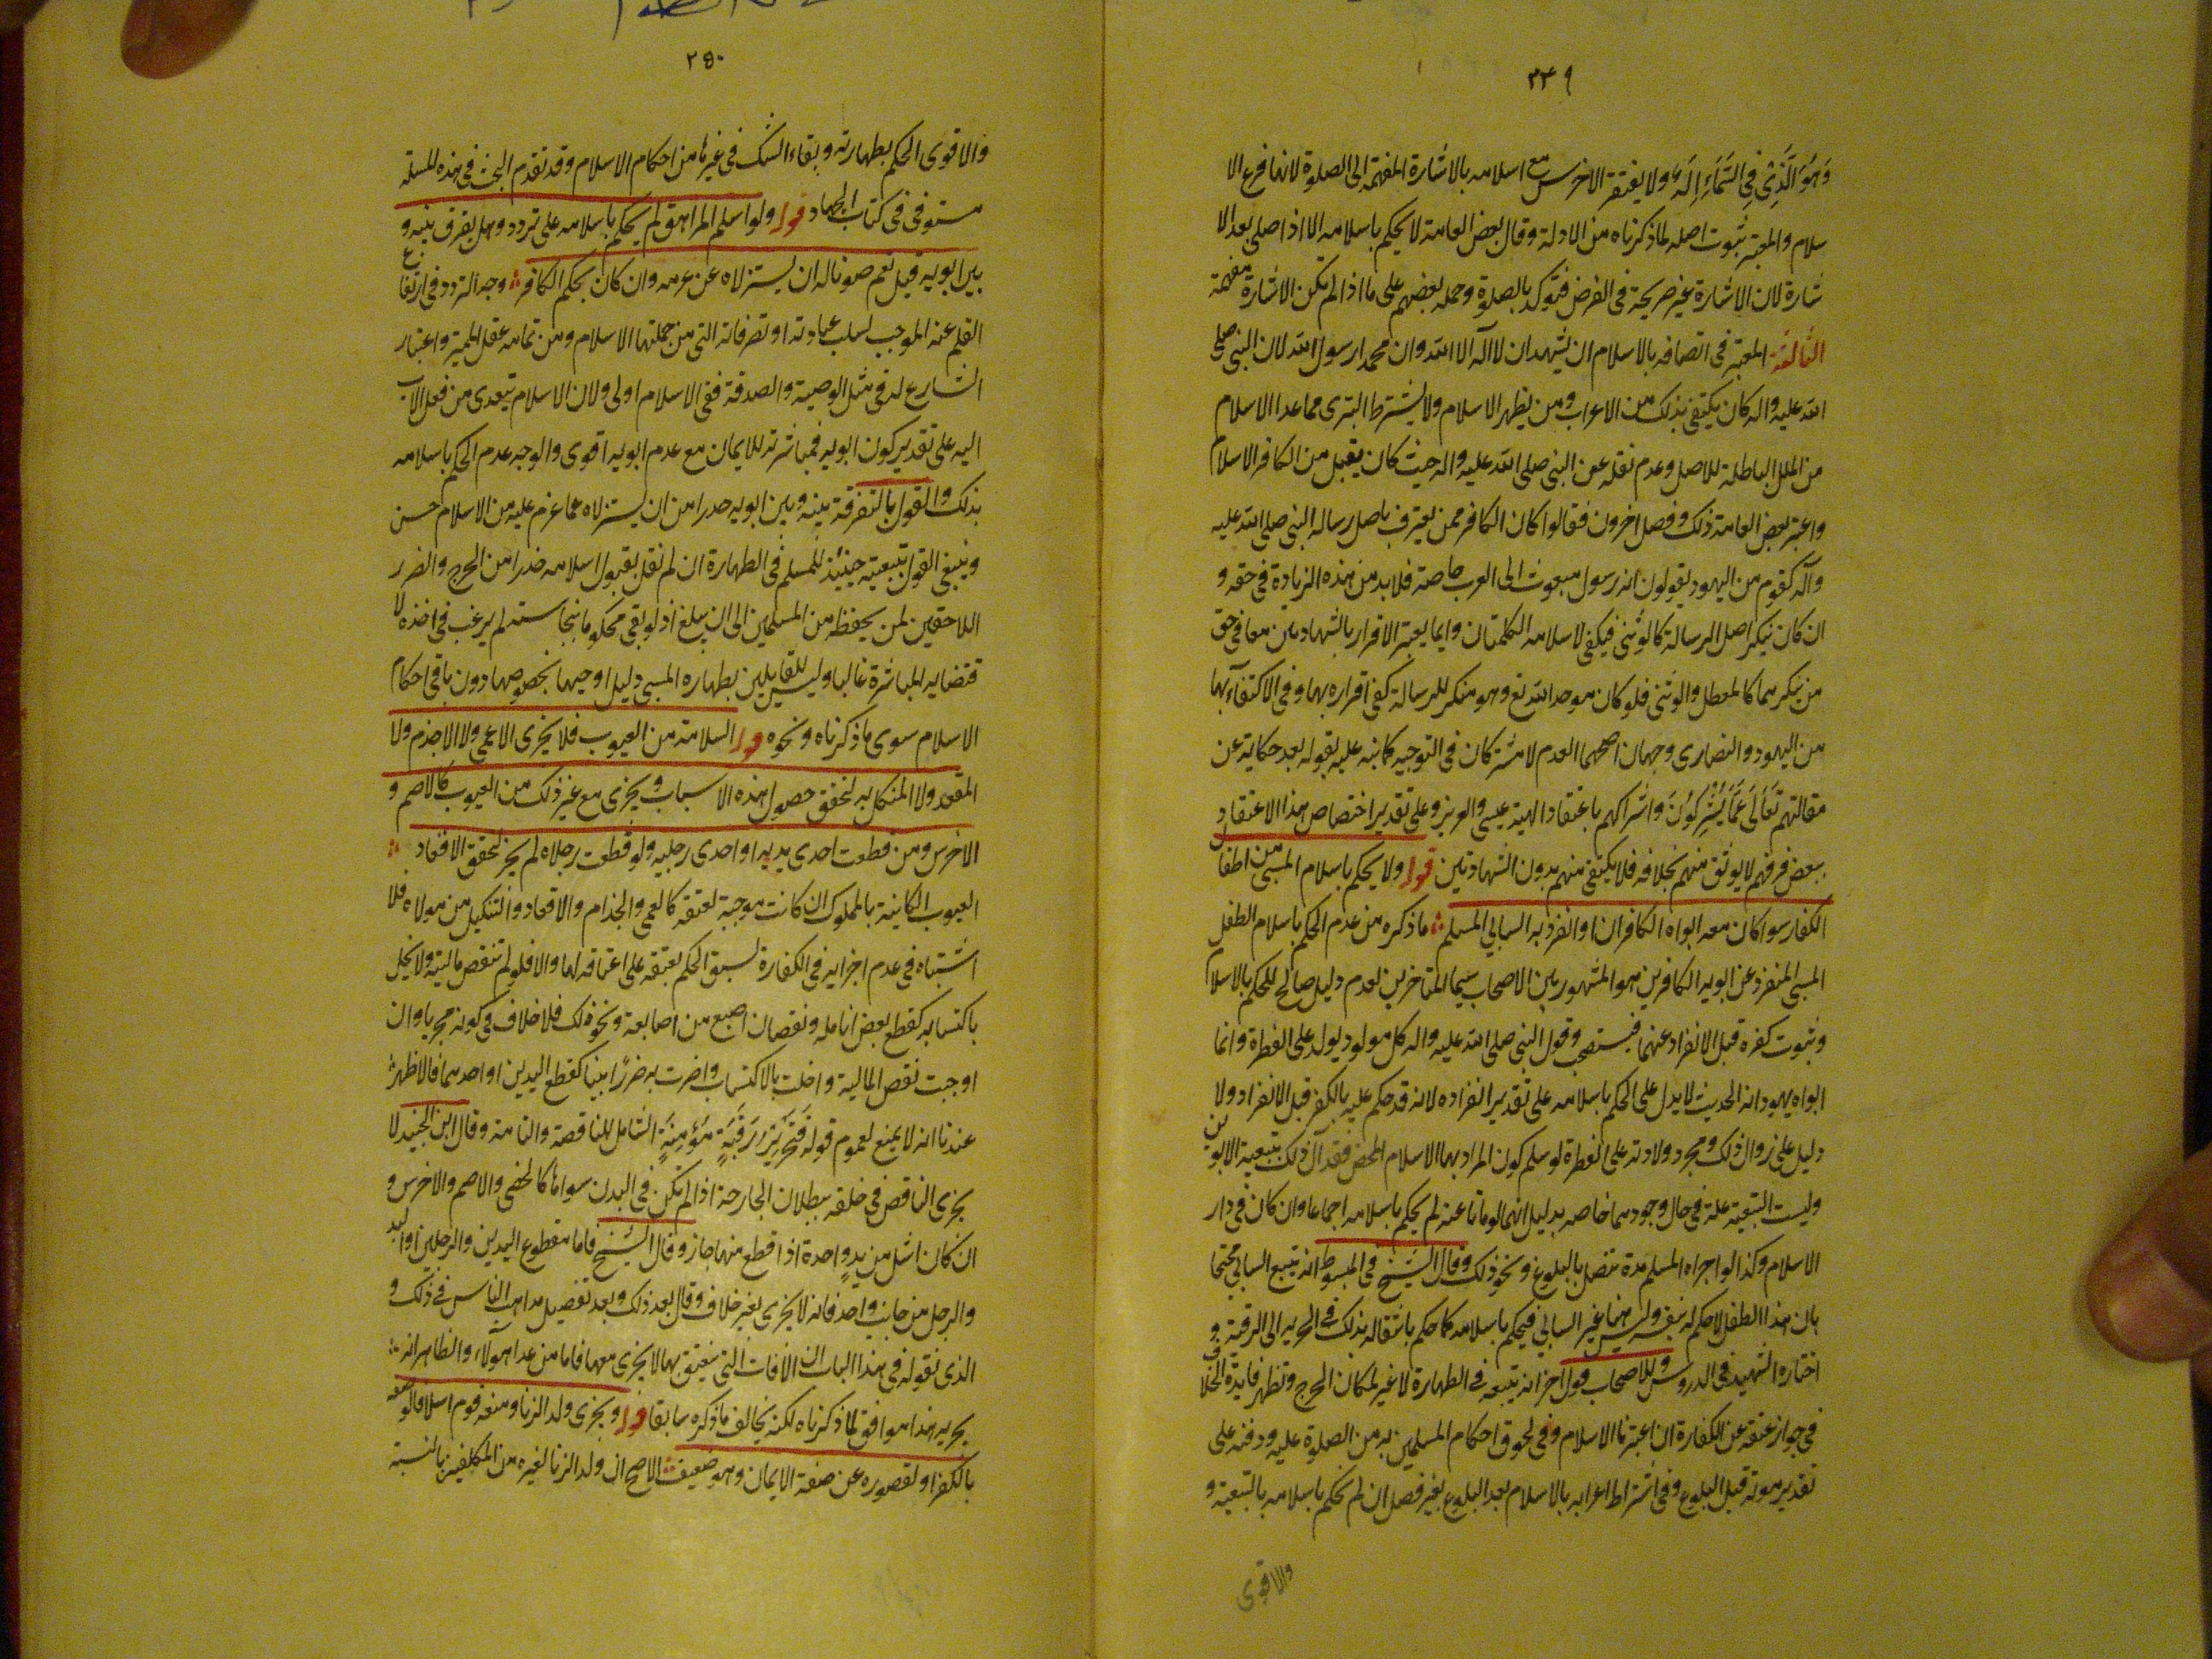 ٢٤٩
وَهُوَ الَّذِي فِي السَّمَاءِ إِلَهٌ ولا يفتقر الاخرس مع اسلامه بالاشارة المفهمة الى الصلوة لانها فرع الا
سلام والمعتبر ثبوت اصله لما ذكرناه من الادلة وقال بعض العامة لا يحكم باسلامه الا اذا صلى بعد الا
شارة لان الاشارة غير صريحة في الغرض فتؤكد بالصلوة وحمله بعضهم على ما اذا لم تكن الاشارة مفهمة
الثالثة المعتبر في اتصافه بالاسلام ان يشهد ان لا اله الا الله وان محمدا رسول الله لان النبي صلى
الله عليه واله كان يكتفي بذلك من الاعراب ومن يظهر الاسلام ولا يشترط التبرى مما عدا الاسلام
من الملل الباطلة للاصل وعدم نقله عن النبي صلى الله عليه واله حيث كان يقبل من الكافر الاسلام
واعتبر بعض العامة ذلك وفصل اخرون فقالوا كان الكافر ممن يعترف باصل رساله النبي صلى الله عليه
وآله كقوم من اليهود يقولون انه رسول مبعوث الى العرب خاصة فلابد من هذه الزيادة في حقه و
ان كان ينكر اصل الرسالة كالوثني فيكفي لاسلامه الكلمتان وانما يعتبر الاقرار بالشهادتين معا في حق
من ينكرهما كالمعطل والوثني فلو كان موحد الله تع وهو منكر للرسالة كفى اقراره بها وفي الاكتفاء بها
من اليهود والنصارى وجهان اصحهما العدم لا مشتركان في التوجيه كما نبه عليه بقوله بعد حكاية عن
مقالتهم تَعَالَى عَمَّا يُشْرِكُونَ واشراكهم باعتقاد الهية عيسى والعزيز وعلى تقدير اختصاص هذا الاعتقاد
ببعض فرقهم لا يوثق منهم بخلافه فلا يكتفى منهم بدون الشهادتين قوله ولا يحكم باسلام المسبي من اطفا
الكفار سوا كان معه ابواه الكافران او انفرد به السابي المسلم ما ذكره من عدم الحكم باسلام الطفل
المسبي المنفرد عن ابويه الكافرين هو المشهور بين الاصحاب سيما المتاخرين لعدم دليل صالح للحكم بالاسلام
وثبوت كفره قبل الانفراد عنهما فيستصحب وقول النبي صلى الله عليه واله كل مولود يولد على الفطرة وانما
ابواه يهودانه الحديث لا يدل على الحكم باسلامه على تقدير انفراده لانه قد حكم عليه بالكفر قبل الانفراد ولا
دليل على زوال ذلك ومجرد ولادته على الفطرة لو سلم كون المراد بها الاسلام المحض فقد زال ذلك بتبعية الابوين
وليست التبعية علة في حال وجودهما خاصه بدليل انهما لو ماتا عنه لم يحكم باسلامه اجماعا وان كان في دار
الاسلام وكذا لو اجراه المسلم مدة تتصل بالبلوغ ونحو ذلك وقال الشيخ في المبسوط انه يتبع السابي محتجا
بان هذا الطفل لا حكم له بنفسه وليس هنا غير السابي فيحكم باسلامه كما حكم بانتقاله بذلك في الحرية الى الرقية و
اختاره الشهيد في الدروس وللاصحاب قول اخر انه يتبعه في الطهارة لا غير لمكان الحرج وتظهر فايدة الخلاف
في جواز عتقه عن الكفارة ان اعتبرنا الاسلام وفي لحوق احكام المسلمين به من الصلوة عليه ودفنه على
تقدير موته قبل البلوغ وفي اشتراط اعرابه بالاسلام بعد البلوغ بغير فصل ان لم نحكم باسلامه بالتبعية و
والاقوى
٢٥٠
والاقوى الحكم بطهارته وبقاء الشك في غيرها من احكام الاسلام وقد تقدم البحث في هذه المسئلة
مستوفى في كتاب الجهاد قوله ولو اسلم المراهق لم يحكم باسلامه على تردد وهل يفرق بينه و
بين ابويه قيل نعم صونا له ان يستزلاه عن عزمه وان كان بحكم الكافر وجه التردد في ارتفاع
القلم عنه الموجب لسلب عبادته او تصرفاته التي من جملتها الاسلام ومن تمامه عقل المميز واعتبار
الشارع له في مثل الوصية والصدقة ففي الاسلام اولى ولان الاسلام يتعدى من فعل الاب
اليه على تقدير كون ابويه فمباشرته للايمان مع عدم ابويه اقوى والوجه عدم الحكم باسلامه
بذلك والقول بالتفرقة بينه وبين ابويه حدرا من ان يستزلاه عما عزم عليه من الاسلام حسن
وينبغي القول بتبعيته حينئذ للمسلم في الطهارة ان لم نقل بقبول اسلامه حذرا من الحرج والضرر
اللاحقين لمن يحفظه من المسلمين الى ان يبلغ اذ لو بقي محكوما بنجاسته لم يرغب في اخذه لا
قتضايه المباشرة غالبا وليس للقايلين بطهاره المسبي دليل اوجيها بخصوصها دون باقي احكام
الاسلام سوى ما ذكرناه ونحوه قوله السلامة من العيوب فلا يجزى الاعمى ولا الاجذم ولا
المقعد ولا المنكل به لتحقق حصول هذه الاسباب ويجزى مع غير ذلك من العيوب كالاصم و
الاخرس ومن قطعت احدى يديه او احدى رجليه ولو قطعت رجلاه لم يجز لتحقق الاقعاد
العيوب الكاينة بالمملوك ان كانت موجبة لعتقه كالعمى والجذام والاقعاد والتنكيل من مولاه فلا
اشتباه في عدم اجزايه في الكفارة لسبق الحكم بعتقه على اعتاقه لها والا فلو لم تنقص ماليته ولا يخل
باكتسابه كقطع بعض انامله ونقصان اصبع من اصابعه ونحو ذلك فلا خلاف في كونه مجزيا وان
اوجبت نقص المالية واخلت بالاكتساب واضرت به ضررًا بينا كقطع اليدين او احدهما فالاظهر
عندنا انه لا يمنع لعموم قوله فَتَحْرِيرُ رَقَبَةٍ مُؤْمِنَةٍ الشامل للناقصة والتامة وقال ابن الجنيد لا
يجزى الناقص في خلقه ببطلان الجارحة اذا لم تكن في البدن سواها كالخصي والاصم والاخرس و
ان كان اشل من يد واحدة اذا قطع منها جاز وقال الشيخ فاما مقطوع اليدين والرجلين او اليد
والرجل من جانب واحد فانه لا يجزى بغير خلاف وقال بعد ذلك وبعد تفصيل مذاهب الناس في ذلك و
الذي نقوله في هذا الباب ان الافات التي ينعتق بها لا يجزى معها فاما من عدا هولاء والظاهر انه
يجزيه هذا موافق لما ذكرناه لكنه يخالف ما ذكره سابقا قوله ويجزى ولد الزنا ومنعه قوم اسلافا لوصفه
بالكفر او لقصوره عن صفة الايمان وهو ضعيف الاصح ان ولد الزنا لغيره من المكلفين بالنسبة